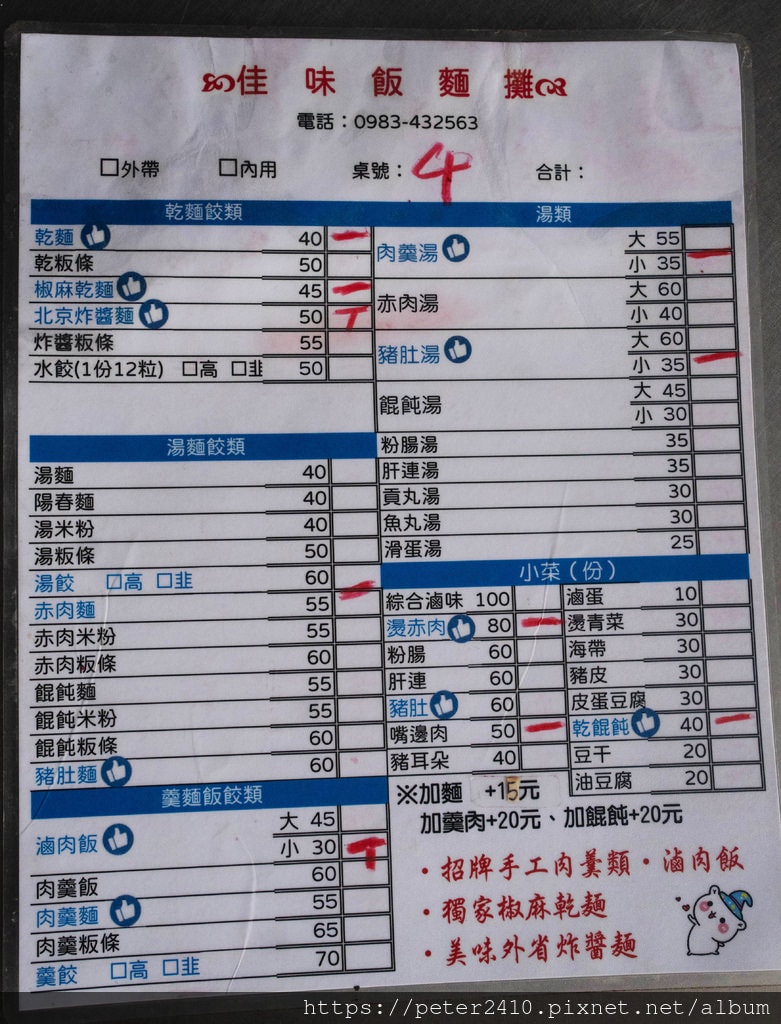 佳味飯麵攤
電話：0983-432563
□外帶 □內用 桌號：4 合計：
乾麵餃類
乾麵 40 一
乾粄條 50
椒麻乾麵 45 一
北京炸醬麵 50 T
炸醬粄條 55
水餃(1份12粒) □高 □韭 50
湯麵餃類
湯麵 40
陽春麵 40
湯米粉 40
湯粄條 50
湯餃 □高 □韭 60
赤肉麵 55 一
赤肉米粉 55
赤肉粄條 60
餛飩麵 55
餛飩米粉 55
餛飩粄條 60
豬肚麵 60
羹麵飯餃類
滷肉飯 大 45
小 30 T
肉羹飯 60
肉羹麵 55
肉羹粄條 65
羹餃 □高 □韭 70
湯類
肉羹湯 大 55
小 35 一
赤肉湯 大 60
小 40
豬肚湯 大 60
小 35 一
餛飩湯 大 45
小 30
粉腸湯 35
肝連湯 35
貢丸湯 30
魚丸湯 30
滑蛋湯 25
小菜（份）
綜合滷味 100
燙赤肉 80 一
粉腸 60
肝連 60
豬肚 60
嘴邊肉 50 一
豬耳朵 40
滷蛋 10
燙青菜 30
海帶 30
豬皮 30
皮蛋豆腐 30
乾餛飩 40 一
豆干 20
油豆腐 20
※加麵 +15元
加羹肉+20元、加餛飩+20元
·招牌手工肉羹類·滷肉飯
·獨家椒麻乾麵
·美味外省炸醬麵
https://peter2410.pixnet.net/album